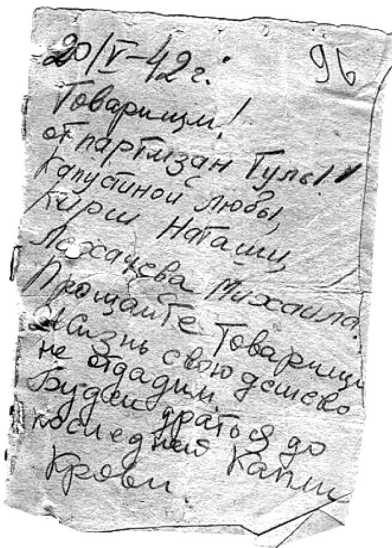 20/V-42г. 96
Товарищи!
от партизан Тулы!
Капустиной Любы,
Кирш Наташи,
Лохачева Михаила.
Прощайте Товарищи
Жизнь свою дешево
не отдадим.
Будем драться до
последней Капли
Крови.